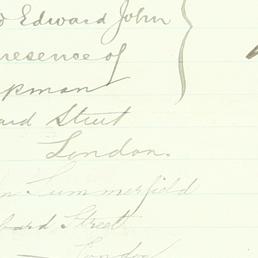 Edward John
presence of
pman
ard Street
London.
Summerfield
bard Street
London